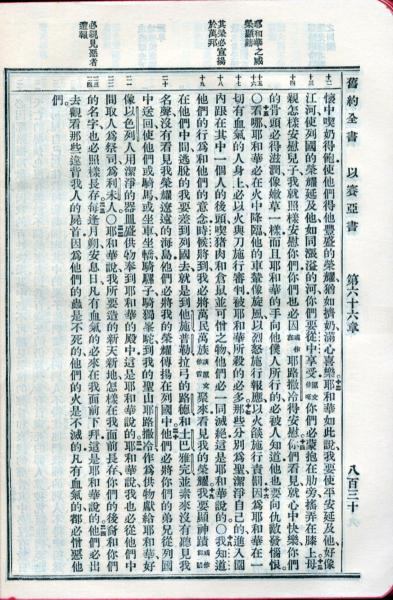 舊約全書 以賽亞書 第六十六章 八百三十
懷中喫奶得飽使他們得豐盛的榮耀猶如擠奶滿心喜樂耶和華如此說我要使平安延及他好像
江河使列國的榮耀延及他如同漲溢的河你們要從中享受你們必蒙抱在肋旁搖弄在膝上母
親怎樣安慰兒子我就照樣安慰你們你們也必因耶路撒冷得安慰你們看見就心中快樂你們
的骨頭必得滋潤像嫩草一樣而且耶和華的手向他僕人所行的必被人知道他也要向仇敵發惱恨
〇看哪耶和華必在火中降臨他的車輦像旋風以烈怒施行報應以火燄施行責罰因為耶和華在一
切有血氣的人身上必以火與刀施行審判被耶和華所殺的必多那些分別為聖潔淨自己的進入園
內跟在其中一個人的後頭喫猪肉和倉鼠並可憎之物他們必一同滅絕這是耶和華說的〇我知道
他們的行為和他們的意念時候將到我必將萬民萬族聚來看見我的榮耀我要顯神蹟
在他們中間逃脫的我要差到列國去就是到他施普勒拉弓的路德和土巴雅完並素來沒有聽見我
名聲沒有看見我榮耀遼遠的海島他們必將我的榮耀傳揚在列國中他們必將你們的弟兄從列國
中送回使他們或騎馬或坐車坐轎騎騾子騎獨峯駝到我的聖山耶路撒冷作為供物獻給耶和華好
像以色列人用潔淨的器皿盛供物奉到耶和華的殿中這是耶和華說的耶和華說我也必從他們中
間取人為祭司為利未人〇耶和華說我所要造的新天新地怎樣在我面前長存你們的後裔和你們
的名字也必照樣長存每逢月朔安息日凡有血氣的必來在我面前下拜這是耶和華說的他們必出
去觀看那些違背我人的屍首因為他們的蟲是不死的他們的火是不滅的凡有血氣的都必憎惡他
們
耶和華之威榮顯赫
其榮必宣揚於萬邦
必親見惡者遭報